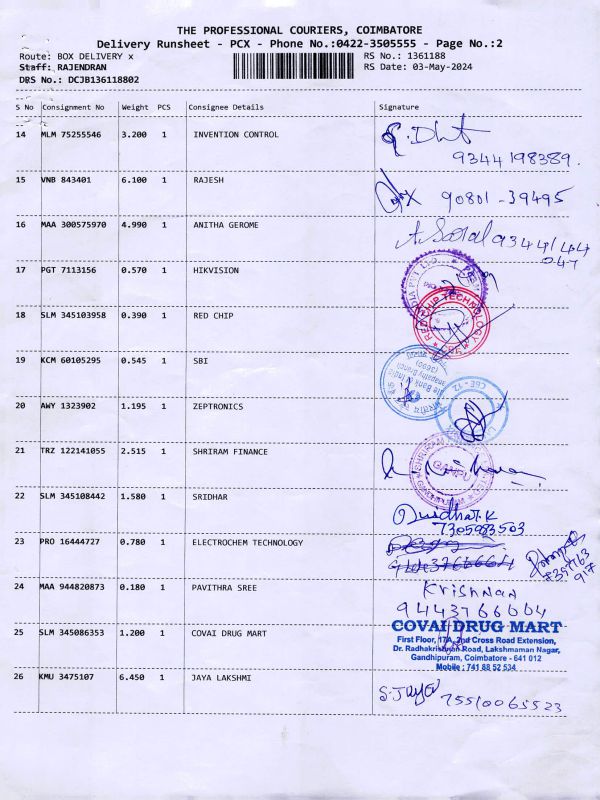 THE PROFESSIONAL COURIERS, COIMBATORE
Delivery Runsheet - PCX - Phone No.:0422-3505555 - Page No.:2
Route: BOX DELIVERY x RS No.: 1361188
Staff: RAJENDRAN RS Date: 03-May-2024
DRS No.: DCJB136118802
S No Consignment No Weight PCS Consignee Details Signature
14 MLM 75255546 3.200 1 INVENTION CONTROL
9344198389.
15 VNB 843401 6.100 1 RAJESH 90801-39495
16 MAA 300575970 4.990 1 ANITHA GEROME
17 PGT 7113156 0.570 1 HIKVISION
18 SLM 345103958 0.390 1 RED CHIP RED CHIP TECHNOLOGY
19 KCM 60105295 0.545 1 SBI
20 AWY 1323902 1.195 1 ZEPTRONICS CBE - 12
21 TRZ 122141055 2.515 1 SHRIRAM FINANCE
22 SLM 345108442 1.580 1 SRIDHAR
7305983503
23 PRO 16444727 0.780 1 ELECTROCHEM TECHNOLOGY
24 MAA 944820873 0.180 1 PAVITHRA SREE Krishnan
9443766004
25 SLM 345086353 1.200 1 COVAI DRUG MART COVAI DRUG MART
First Floor, 17A, 2nd Cross Road Extension,
Dr. Radhakrishnan Road, Lakshmanan Nagar,
Gandhipuram, Coimbatore - 641 012
Mobile : 741 88 52 534
26 KMU 3475107 6.450 1 JAYA LAKSHMI
75510065523